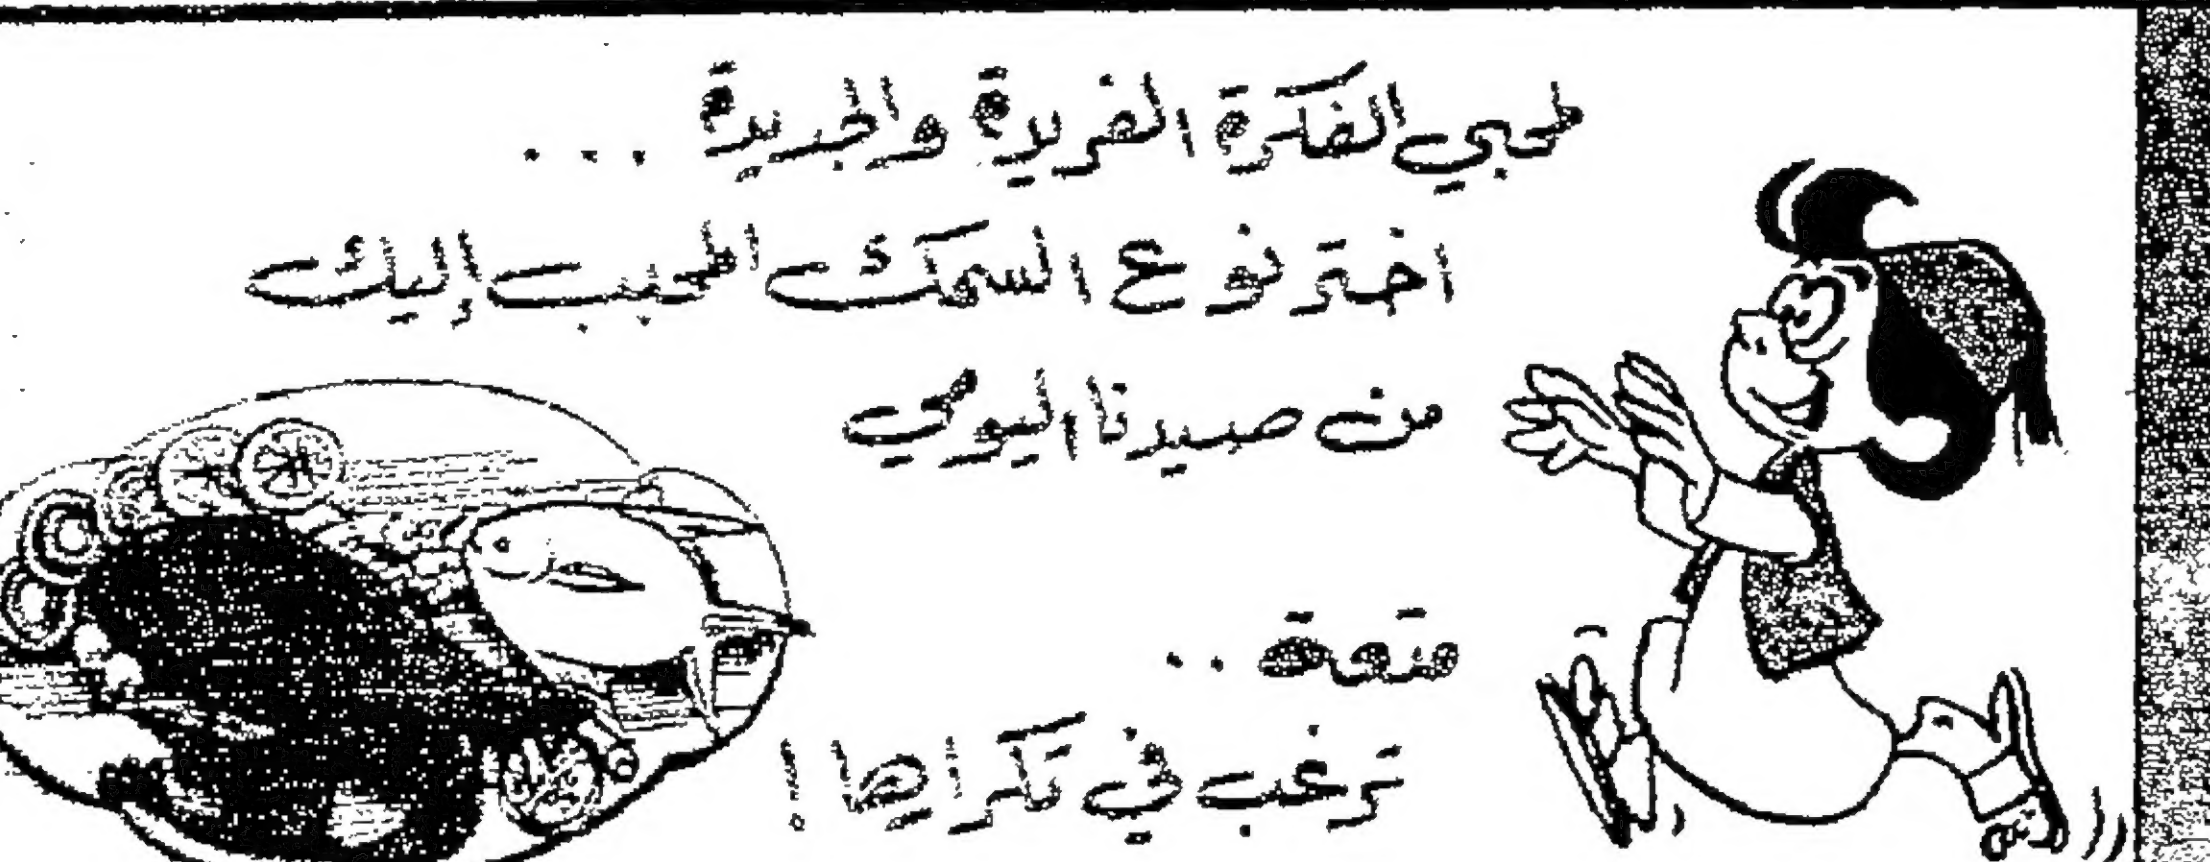 لمحبي الفكرة الفريدة والجديدة ...
اختر نوع السمك المحبب إليك
من صيدنا اليومي
متعة ..
ترغب في تكرارها !